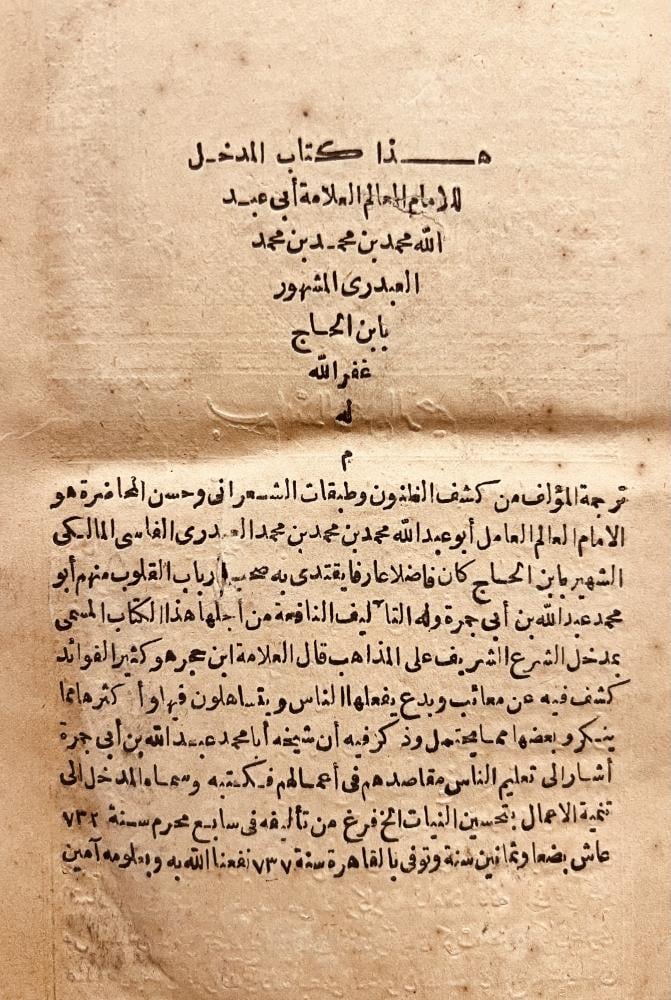 هـذا كتاب المدخـل
للامام العالم العلامة أبى عبـد
الله محمد بن محمـد بن محمد
العبدرى المشهور
بابن الحـاج
غفر الله
له
م
ترجمة المؤلف من كشف الظنون وطبقات الشعرانى وحسن المحاضرة هو
الامام العالم العامل أبو عبد الله محمد بن محمد بن محمد العبدرى الفاسى المالكى
الشهير بابن الحاج كان فاضلا عارفا يقتدى به صحب ارباب القلوب منهم أبو
محمد عبد الله بن أبى جمرة وله التآليف النافعة من أجلها هذا الكتاب المسمى
بمدخل الشرع الشريف على المذاهب قال العلامة ابن حجر هو كثير الفوائد
كشف فيه عن معائب وبدع يفعلها الناس ويتساهلون فيها وأكثرها مما
ينكر وبعضها مما يحتمل وذكر فيه أن شيخه أبا محمد عبد الله بن أبى جمرة
أشار الى تعليم الناس مقاصدهم فى أعمالهم فكتبه وسماه المدخل الى
تنمية الاعمال بتحسين النيات الخ فرغ من تأليفه فى سابع محرم سنة ٧٣٢
عاش بضعا وثمانين سنة وتوفى بالقاهرة سنة ٧٣٧ نفعنا الله به وبعلومه آمين